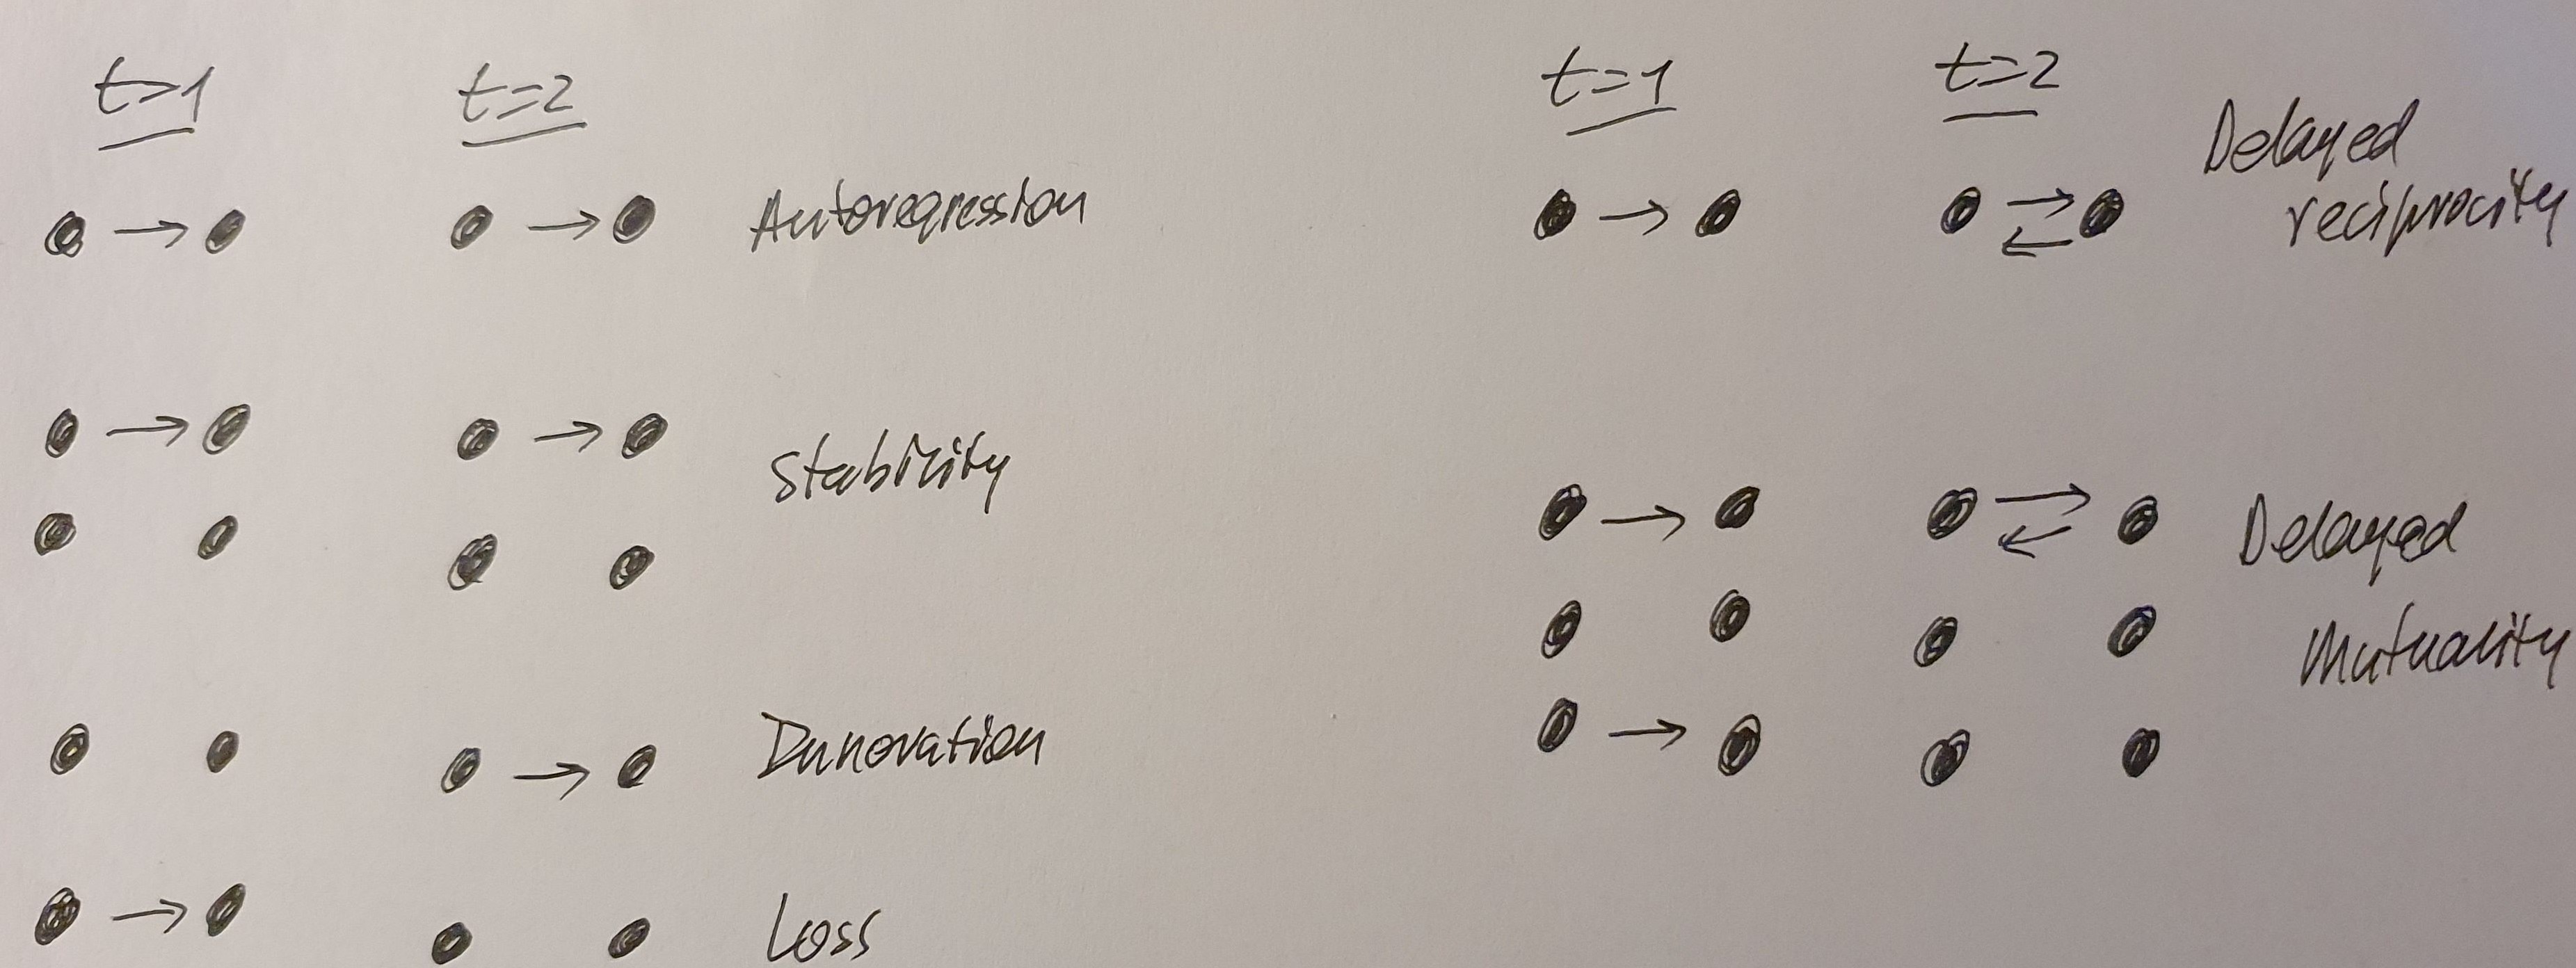 t=1
t=2
Autoregression
Stability
Innovation
Loss
t=1
t=2
Delayed
reciprocity
Delayed
Mutuality